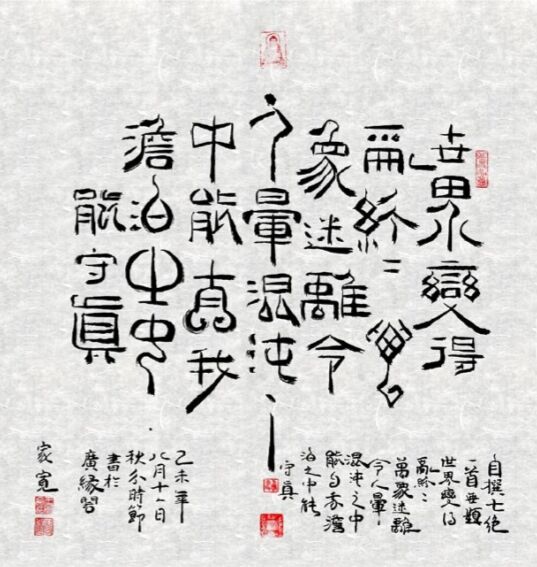 世界變得
亂紛〻萬
象迷離令
人暈混沌之
中能真我
澹泊之中
能守眞
自撰七絕
一首無題
世界變得
亂紛〻
萬象迷離
令人暈
混沌之中
能自我澹
泊之中能
守真
乙未年
八月十一日
秋分時節
書於
廣緣閣
家寬